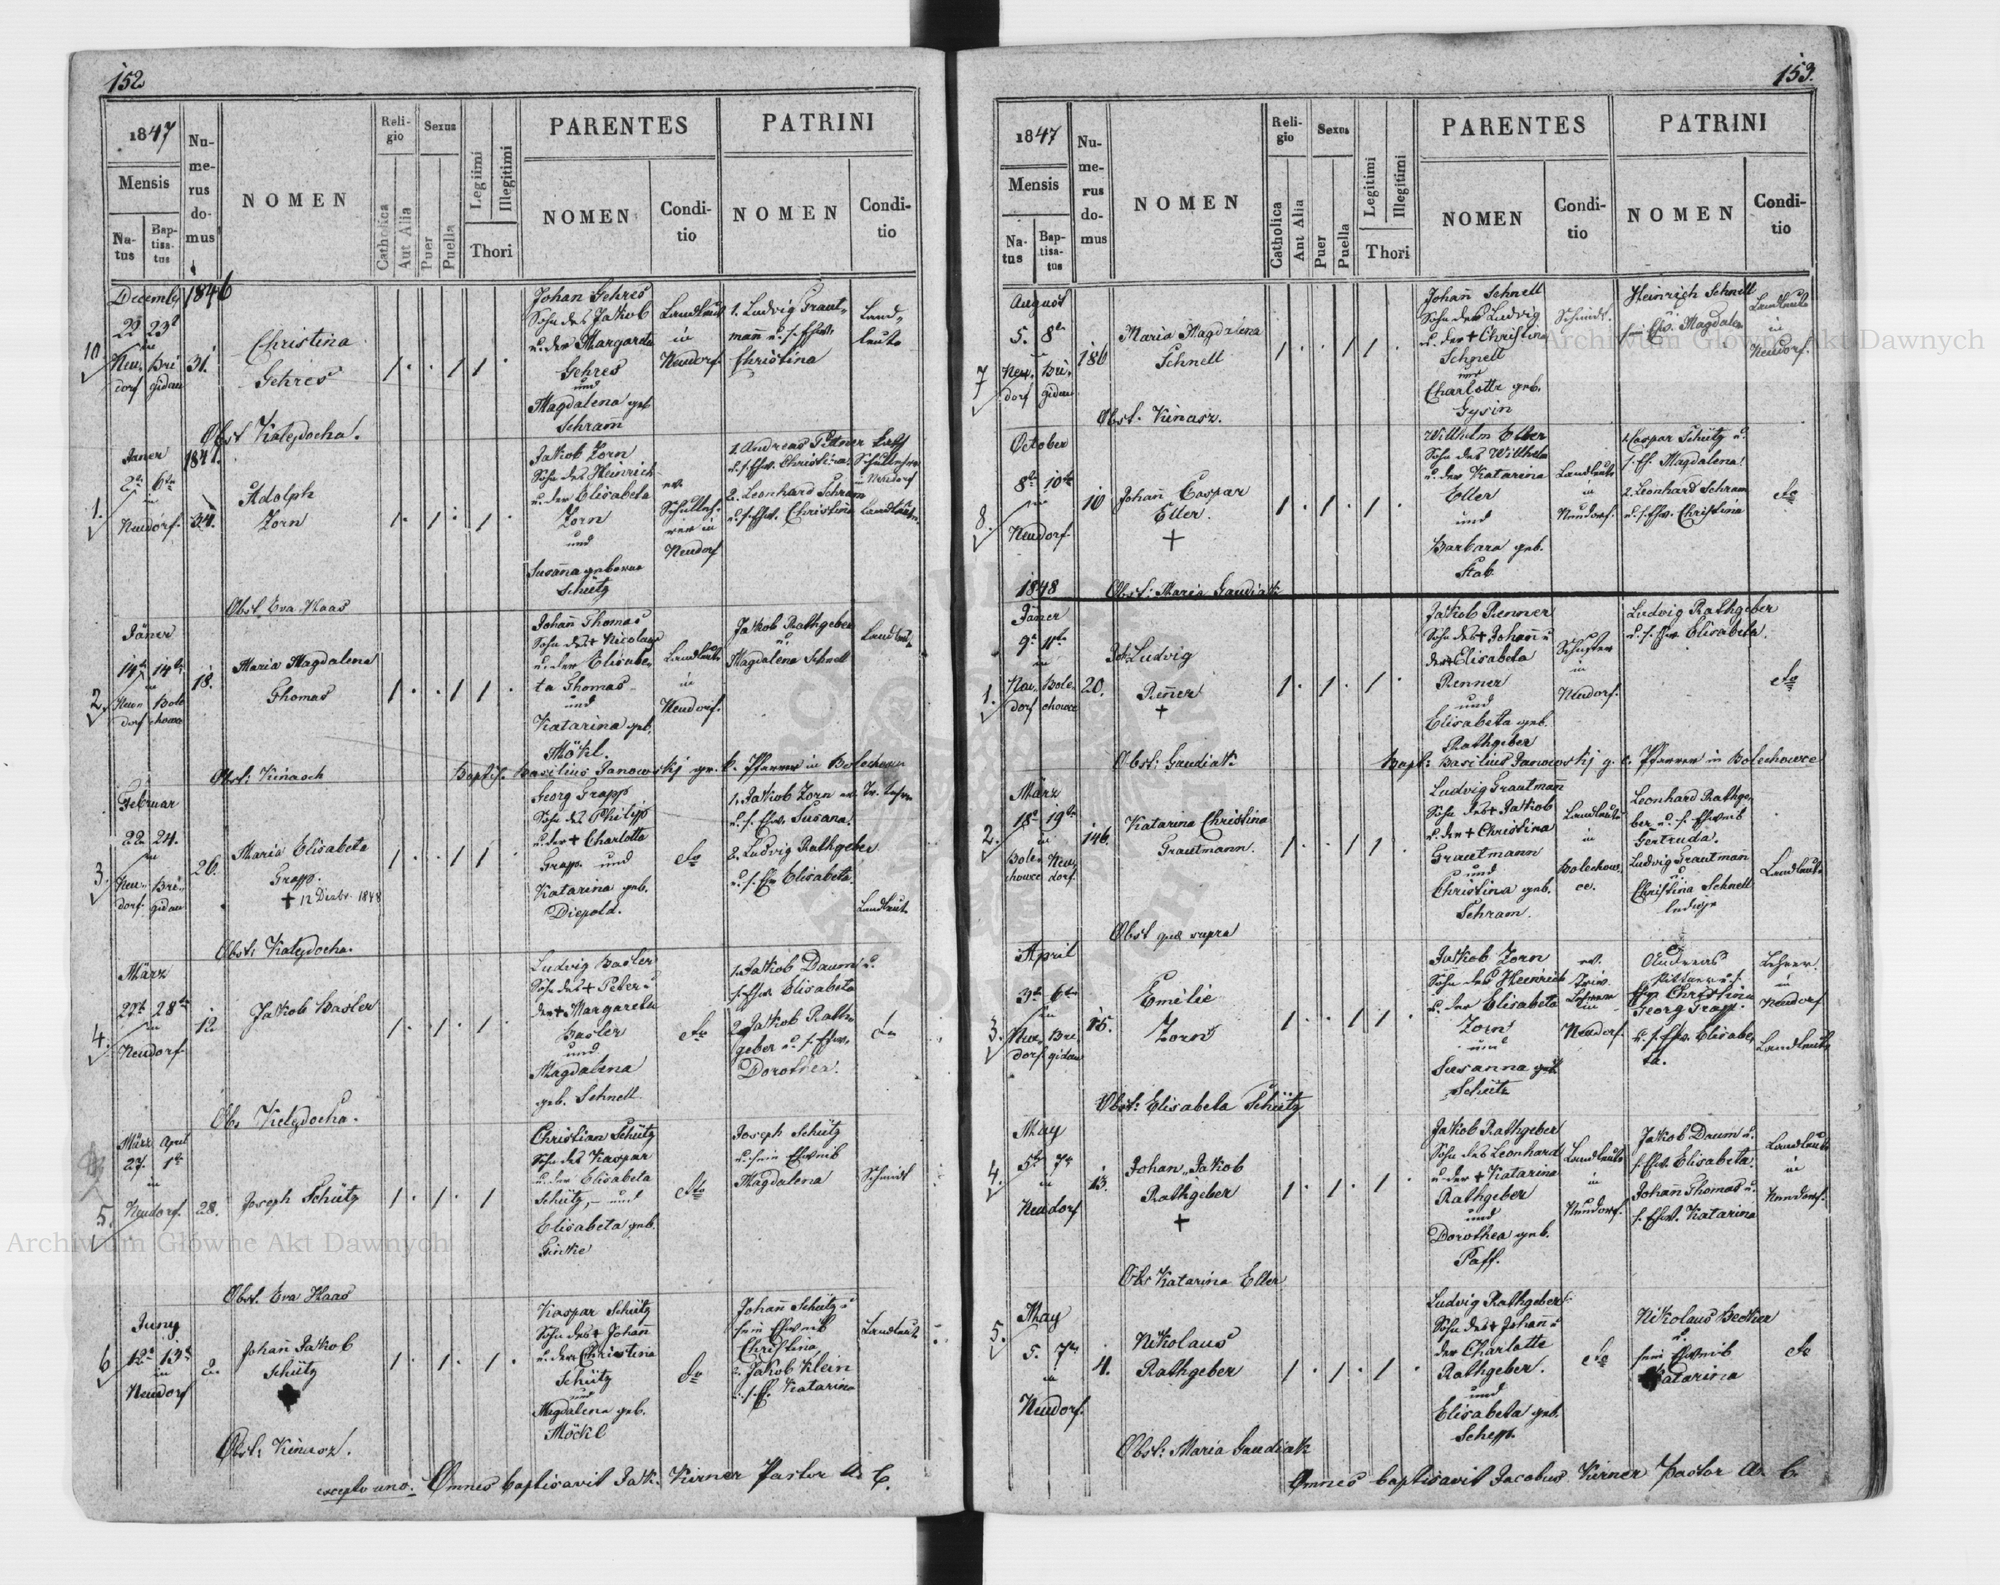 152
1847
Mensis
Na-
tus
Bap-
tisa-
tus
Nu-
me-
rus
do-
mus
NOMEN
Reli-
gio
Catholica
Aut Alia
Sexus
Puer
Puella
Legitimi
Illegitimi
Thori
PARENTES
NOMEN
Condi-
tio
PATRINI
NOMEN
Condi-
tio
Decemb 1846
10
22 23t
in
Neu- Bri
dorf gidau
31.
Christina
Gehres
Johan Gehres
Sohn des Jakob
u. der Margareta
Gehres
und
Magdalena geb
Schram
Landleut
in
Neudorf
1. Ludwig Graut-
mann u. s. Ehw.
Christina
Land-
leute
Obst Kateydocha.
Janer 1847.
1.
2te 6te
in
Neudorf.
34.
Adolph
Zorn
Jakob Zorn
Sohn des Heinrich
u. der Elisabeta
Zorn
und
Susanna geborne
Schütz
ev.
Schulleh-
rer in
Neudorf
1. Andreas Pittner
u. s. Ehw. Christina
2. Leonhard Schram
u. s. Ehw. Christina
Schullehrer
Neudorf
Landleute
Obst Eva Haas
Jäner
2.
14te 14te
in
Neu- Bole
dorf chowce
18.
Maria Magdalena
Thomas
Johann Thomas
Sohn des + Nicolaus
u. der Elisabe-
ta Thomas
und
Katarina geb.
Mökl.
Landleute
in
Neudorf.
Jakob Rathgeber
u.
Magdalena Schnell
Landleute
Obst: Kinasch
Baptis. Basilius Janowskj gr. k. Pfarrer in Bolechowce
Februar
3.
22 24.
in
Neu- Bri-
dorf gidau
26.
Maria Elisabeta
Grapp.
+ 12 Dezbr 1848
Georg Grapp
Sohn des Philipp
u. der + Charlotta
Grapp. und
Katarina geb.
Diepold.
dto
1. Jakob Zorn ev. Tr. Lehrer
u. s. Ehw. Susana.
2. Ludwig Rathgeber
u. s. Ehw Elisabeta.
Landleute
Obst: Kateydocha.
März
4.
27te 28te
in
Neudorf
12
Jakob Basler
Ludwig Basler
Sohn des + Peter u
der + Margareta
Basler
und
Magdalena
geb. Schnell
dto
1. Jakob Daum u.
s. Ehw Elisabeta
2. Jakob Rath-
geber u. s. Ehw.
Dorothea.
dto
Obs Kateydocha.
März April
27. 1te
in
5.
Neudorf.
28.
Joseph Schütz
Christian Schütz
Sohn des Kaspar
u. der Elisabeta
Schütz, und
Elisabeta geb.
dto
Joseph Schütz
u. sein Ehweib
Magdalena
Schmidt
Obst. Eva Haas
Juny
6
12te 13te
in
Neudorf
2.
Johann Jakob
Schütz
Kaspar Schütz
Sohn des + Johann
u. der Christina
Schütz
und
Magdalena geb.
Möckl
dto
Johann Schütz u
sein Ehweib
Christina
2. Jakob Klein
u. s. Ef. Katarina
Landleute
Obst: Kinasz.
excepto uno. Omnes baptisavit Jakb. Kirner Pastor A. C.
153.
1847
Mensis
Na-
tus
Bap-
tisa-
tus
Nu-
me-
rus
do-
mus
NOMEN
Reli-
gio
Catholica
Ant Alia
Sexus
Puer
Puella
Legitimi
Illegitimi
Thori
PARENTES
NOMEN
Condi-
tio
PATRINI
NOMEN
Condi-
tio
August
7
5. 8te
in
Neu- Bri-
dorf gidau
186
Maria Magdalena
Schnell
Johann Schnell
Sohn des Ludwig
u. der + Christina
Schnell
und
Charlotte geb.
Gysin
Schmidt.
Heinrich Schnell
sein Ehw. Magdalena
Landleute
in
Neudorf.
Obst. Kinasz.
October
8.
8te 10te
in
Neudorf
10
Johann Caspar
Eller.
+
Wilhelm Eller
Sohn des Wilhelm
u. der Katarina
Eller
und
Barbara geb.
Stab
Landleute
in
Neudorf.
1. Caspar Schütz u.
s. Ef. Magdalena.
2. Leonhard Schram
u. s. Ehw. Christina
dto
1848 Obst: Maria Gaudiak
Jäner
9te 11te
in
1.
Neu- Bole-
dorf chowce
20.
Ludwig
Renner
+
Jakob Renner
Sohn des + Johann u
der + Elisabeta
Renner
und
Elisabeta geb.
Rathgeber
Schuster
in
Neudorf.
Ludwig Rathgeber
u. s. Ehw Elisabeta.
dto
Obst: Gaudiak
Bapt: Basilius Janowskj g. c. Pfarrer in Bolechowce
März
2.
18te 19te
in
Bole- Neu-
chowce dorf.
146.
Katarina Christina
Grautmann.
Ludwig Grautmann
Sohn des + Jakob
u. der + Christina
Grautmann
und
Christina geb.
Schram.
Landleute
in
Bolechow-
ce.
Leonhard Rathge-
ber u. s. Ehweib
Gertruda.
Ludwig Grautmann
u
Christina Schnell
ledige
Landleute
Obst quæ supra
April
3te 6te
in
3.
Neu- Bri-
dorf gidau
15.
Emilie
Zorn
Jakob Zorn
Sohn des Heinrich
u. der Elisabeta
Zorn
und
Susanna geb
Schütz
ev.
Triv.
Lehrer
in
Neudorf.
Andreas
Pittner u. s.
Ehw Christina
Georg Grapp.
u. s. Ehw. Elisabe-
ta.
Lehrer
in
Neudorf
Landleute
Obst: Elisabeta Schütz
May
4.
5te 7te
in
Neudorf
13.
Johan Jakob
Rathgeber
+
Jakob Rathgeber
Sohn des Leonhard
u. der + Katarina
Rathgeber
und
Dorothea geb.
Paff.
Landleute
in
Neudorf
Jakob Daum u.
s. Ehw. Elisabeta.
Johann Thomas u.
s. Ehw. Katarina
Landleute
in
Neudorf.
Obs Katarina Eller
May
5.
5. 7te
in
Neudorf.
4.
Nikolaus
Rathgeber
Ludwig Rathgeber
Sohn des + Johann u
der Charlotte
Rathgeber.
und
Elisabeta geb.
Schepp.
dto
Nikolaus Becker
u.
sein Ehweib
Katarina
dto
Obst: Maria Gaudiak
Omnes baptisavit Jacobus Kirner Pastor A. C.
Archiwum Główne Akt Dawnych
Archiwum Główne Akt Dawnych